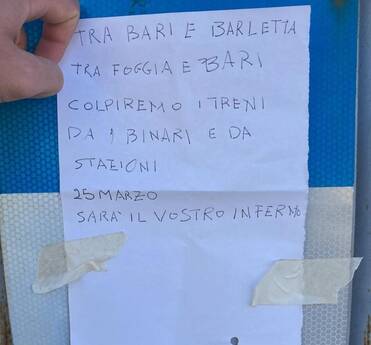 TRA BARI E BARLETTA
TRA FOGGIA E BARI
COLPIREMO I TRENI
DA I BINARI E DA
STAZIONI
25 MARZO
SARA' IL VOSTRO INFERNO